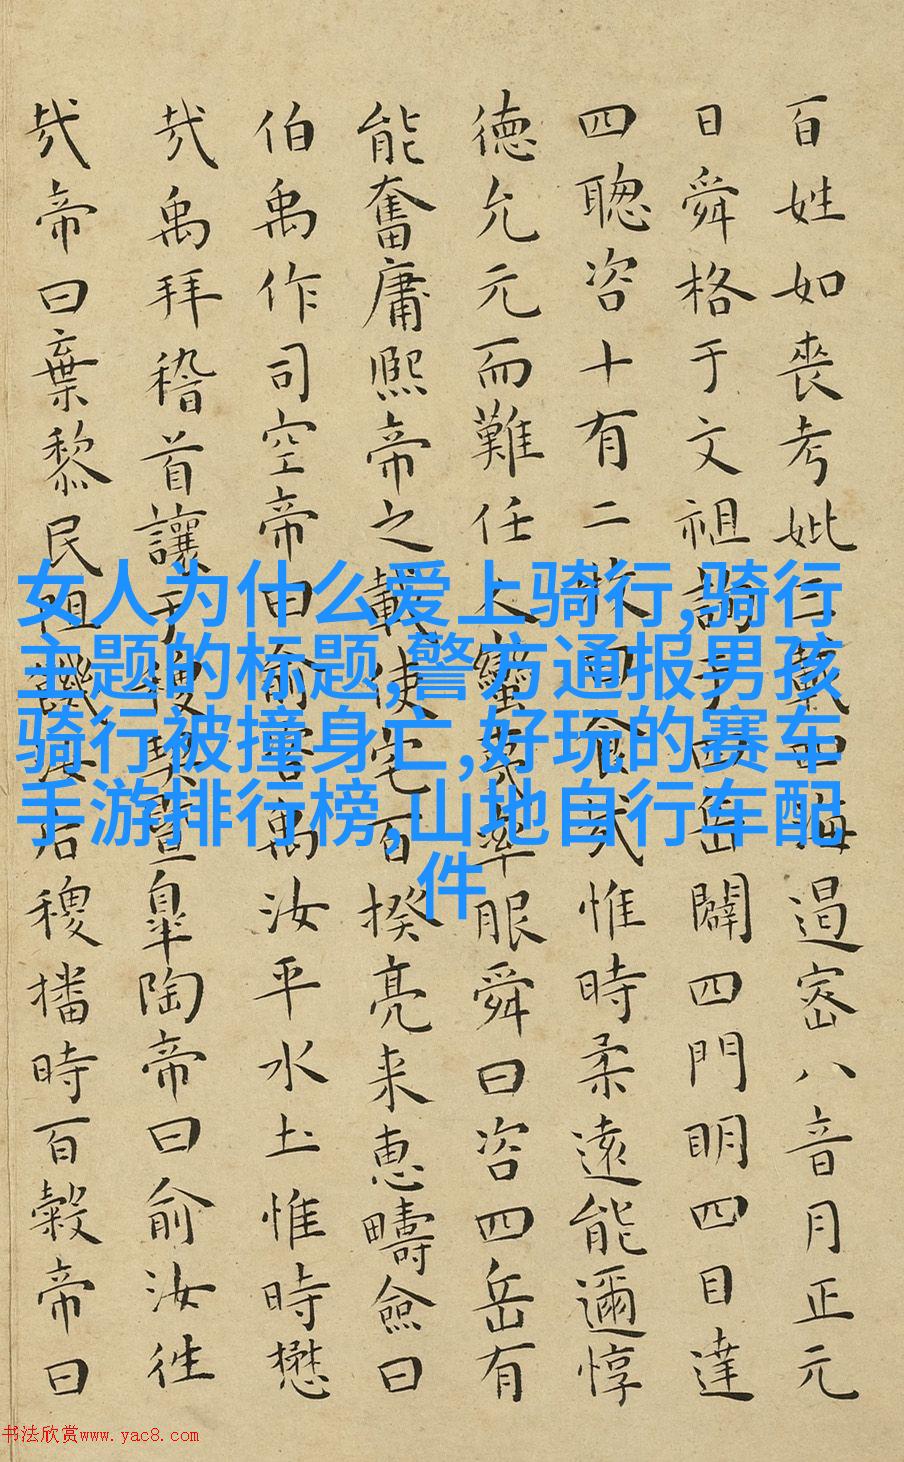 百姓如喪考妣三載四海遏密八音月正元
日舜格于文祖詢于四岳闢四門明四目達
四聡咨十有二牧曰食哉惟時柔遠能邇惇
徳允元而難任人蠻夷率服舜曰咨四岳有
能奮庸熙帝之載使宅百揆亮来恵疇僉曰
伯禹作司空帝曰俞咨禹汝平水土惟時懋
哉禹拜稽首讓于稷契暨皐陶帝曰俞汝往
哉帝曰棄黎民阻饑汝后稷播時百穀帝曰
女人为什么爱上骑行,骑行
主题的标题,警方通报男孩
骑行被撞身亡,好玩的赛车
手游排行榜,山地自行车配
件
书法欣赏www.yac8.com